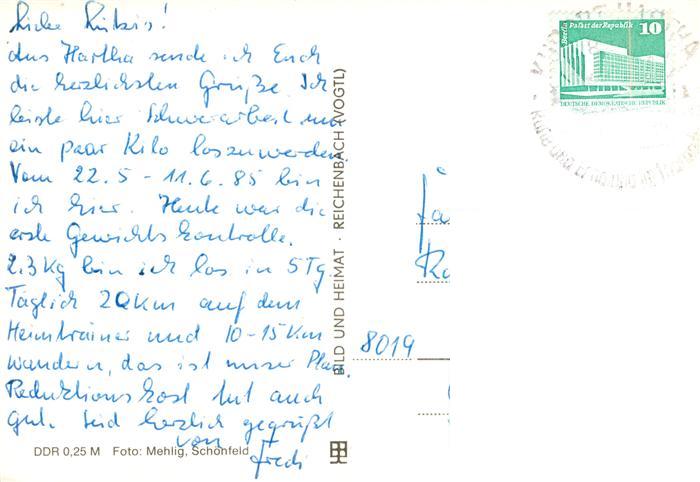 Liebe
aus Hartha sende ich Euch
die herzlichsten Grüße. Ich
leiste hier Schwerarbeit um
ein paar Kilo loszuwerden.
Vom 22.5 - 11.6.85 bin
ich hier. Heute war die
erste Gewichtskontrolle.
2,3 Kg bin ich los in 5 Tg.
Täglich 20 Km auf dem
Heimtrainer und 10-15 Km
wandern, das ist unser Plan.
Reduktionskost tut auch
gut. Seid herzlich gegrüßt
von
Fredi
DDR 0,25 M Foto: Mehlig, Schönfeld
BILD UND HEIMAT · REICHENBACH (VOGTL)
Berlin Palast der Republik 10
DEUTSCHE DEMOKRATISCHE REPUBLIK
8019